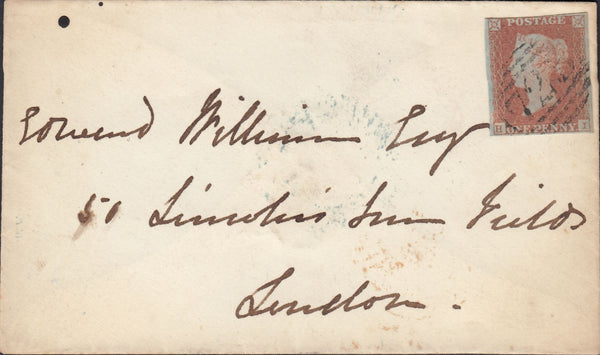 POSTAGE
ONE PENNY
Edward William Esq
50 Lincoln's Inn Fields
London.